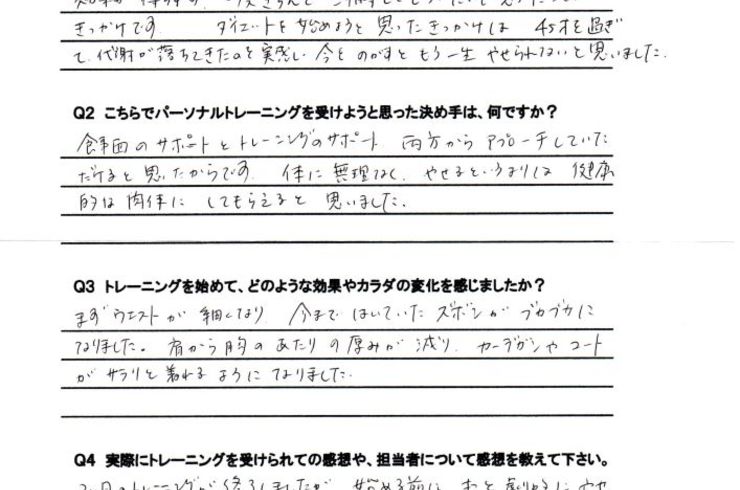 きっかけです　ダイエットを始めようと思ったきっかけは 45才を過ぎ
て、代謝が落ちてきたのを実感し 今を のがすと もう一生 やせられないと思いました.
Q2 こちらでパーソナルトレーニングを受けようと思った決め手は、何ですか？
食事面のサポートとトレーニングのサポート 両方から アプローチしていた
だけると思ったからです. 体に無理なく, やせるというよりは 健康
的な肉体に してもらえると 思いました.
Q3 トレーニングを始めて、どのような効果やカラダの変化を感じましたか？
まずウエストが 細くなり 今まで はいていた ズボンが ブカブカに
なりました。肩から胸の あたりの厚みが 減り, カーデガンや コート
が サラリと着れる ようになりました.
Q4 実際にトレーニングを受けられての感想や、担当者について感想を教えて下さい。